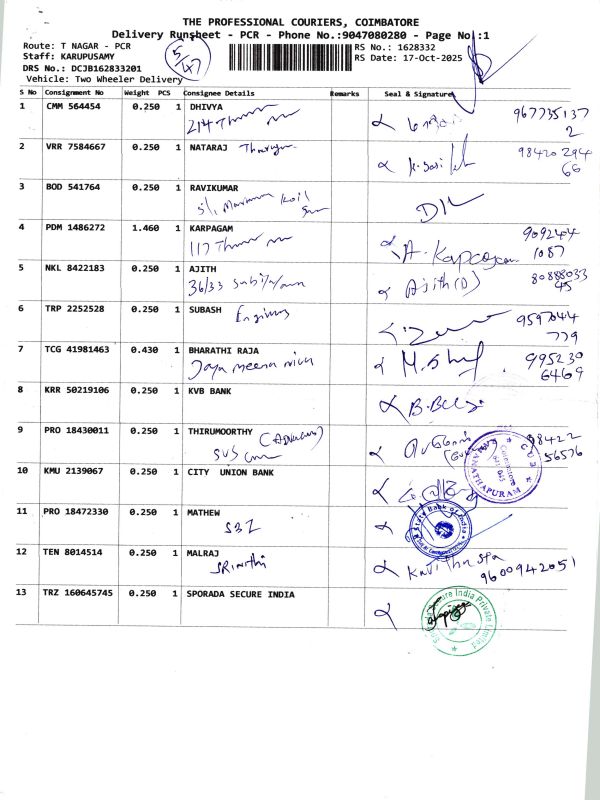 THE PROFESSIONAL COURIERS, COIMBATORE
Delivery Runsheet - PCR - Phone No.:9047080280 - Page No.:1
Route: T NAGAR - PCR
5/47
RS No.: 1628332
Staff: KARUPUSAMY
RS Date: 17-Oct-2025
DRS No.: DCJB162833201
Vehicle: Two Wheeler Delivery
S No Consignment No Weight PCS Consignee Details Remarks Seal & Signature
1 CMM 564454 0.250 1 DHIVYA
214 967735137
2
2 VRR 7584667 0.250 1 NATARAJ 98420 294
66
3 BOD 541764 0.250 1 RAVIKUMAR
4 PDM 1486272 1.460 1 KARPAGAM 9092404
117 A. Karpagam 1087
5 NKL 8422183 0.250 1 AJITH 80888033
36/33 Ajith(D) 45
6 TRP 2252528 0.250 1 SUBASH 9597044
779
7 TCG 41981463 0.430 1 BHARATHI RAJA 995230
Jaya meena 6469
8 KRR 50219106 0.250 1 KVB BANK
9 PRO 18430011 0.250 1 THIRUMOORTHY 98422
SVS 56576
10 KMU 2139067 0.250 1 CITY UNION BANK
CUB
Coimbatore
RAMANATHAPURAM
11 PRO 18472330 0.250 1 MATHEW
State Bank of India
12 TEN 8014514 0.250 1 MALRAJ
Srinithi
9600942051
13 TRZ 160645745 0.250 1 SPORADA SECURE INDIA
Sporada Secure India Private Limited